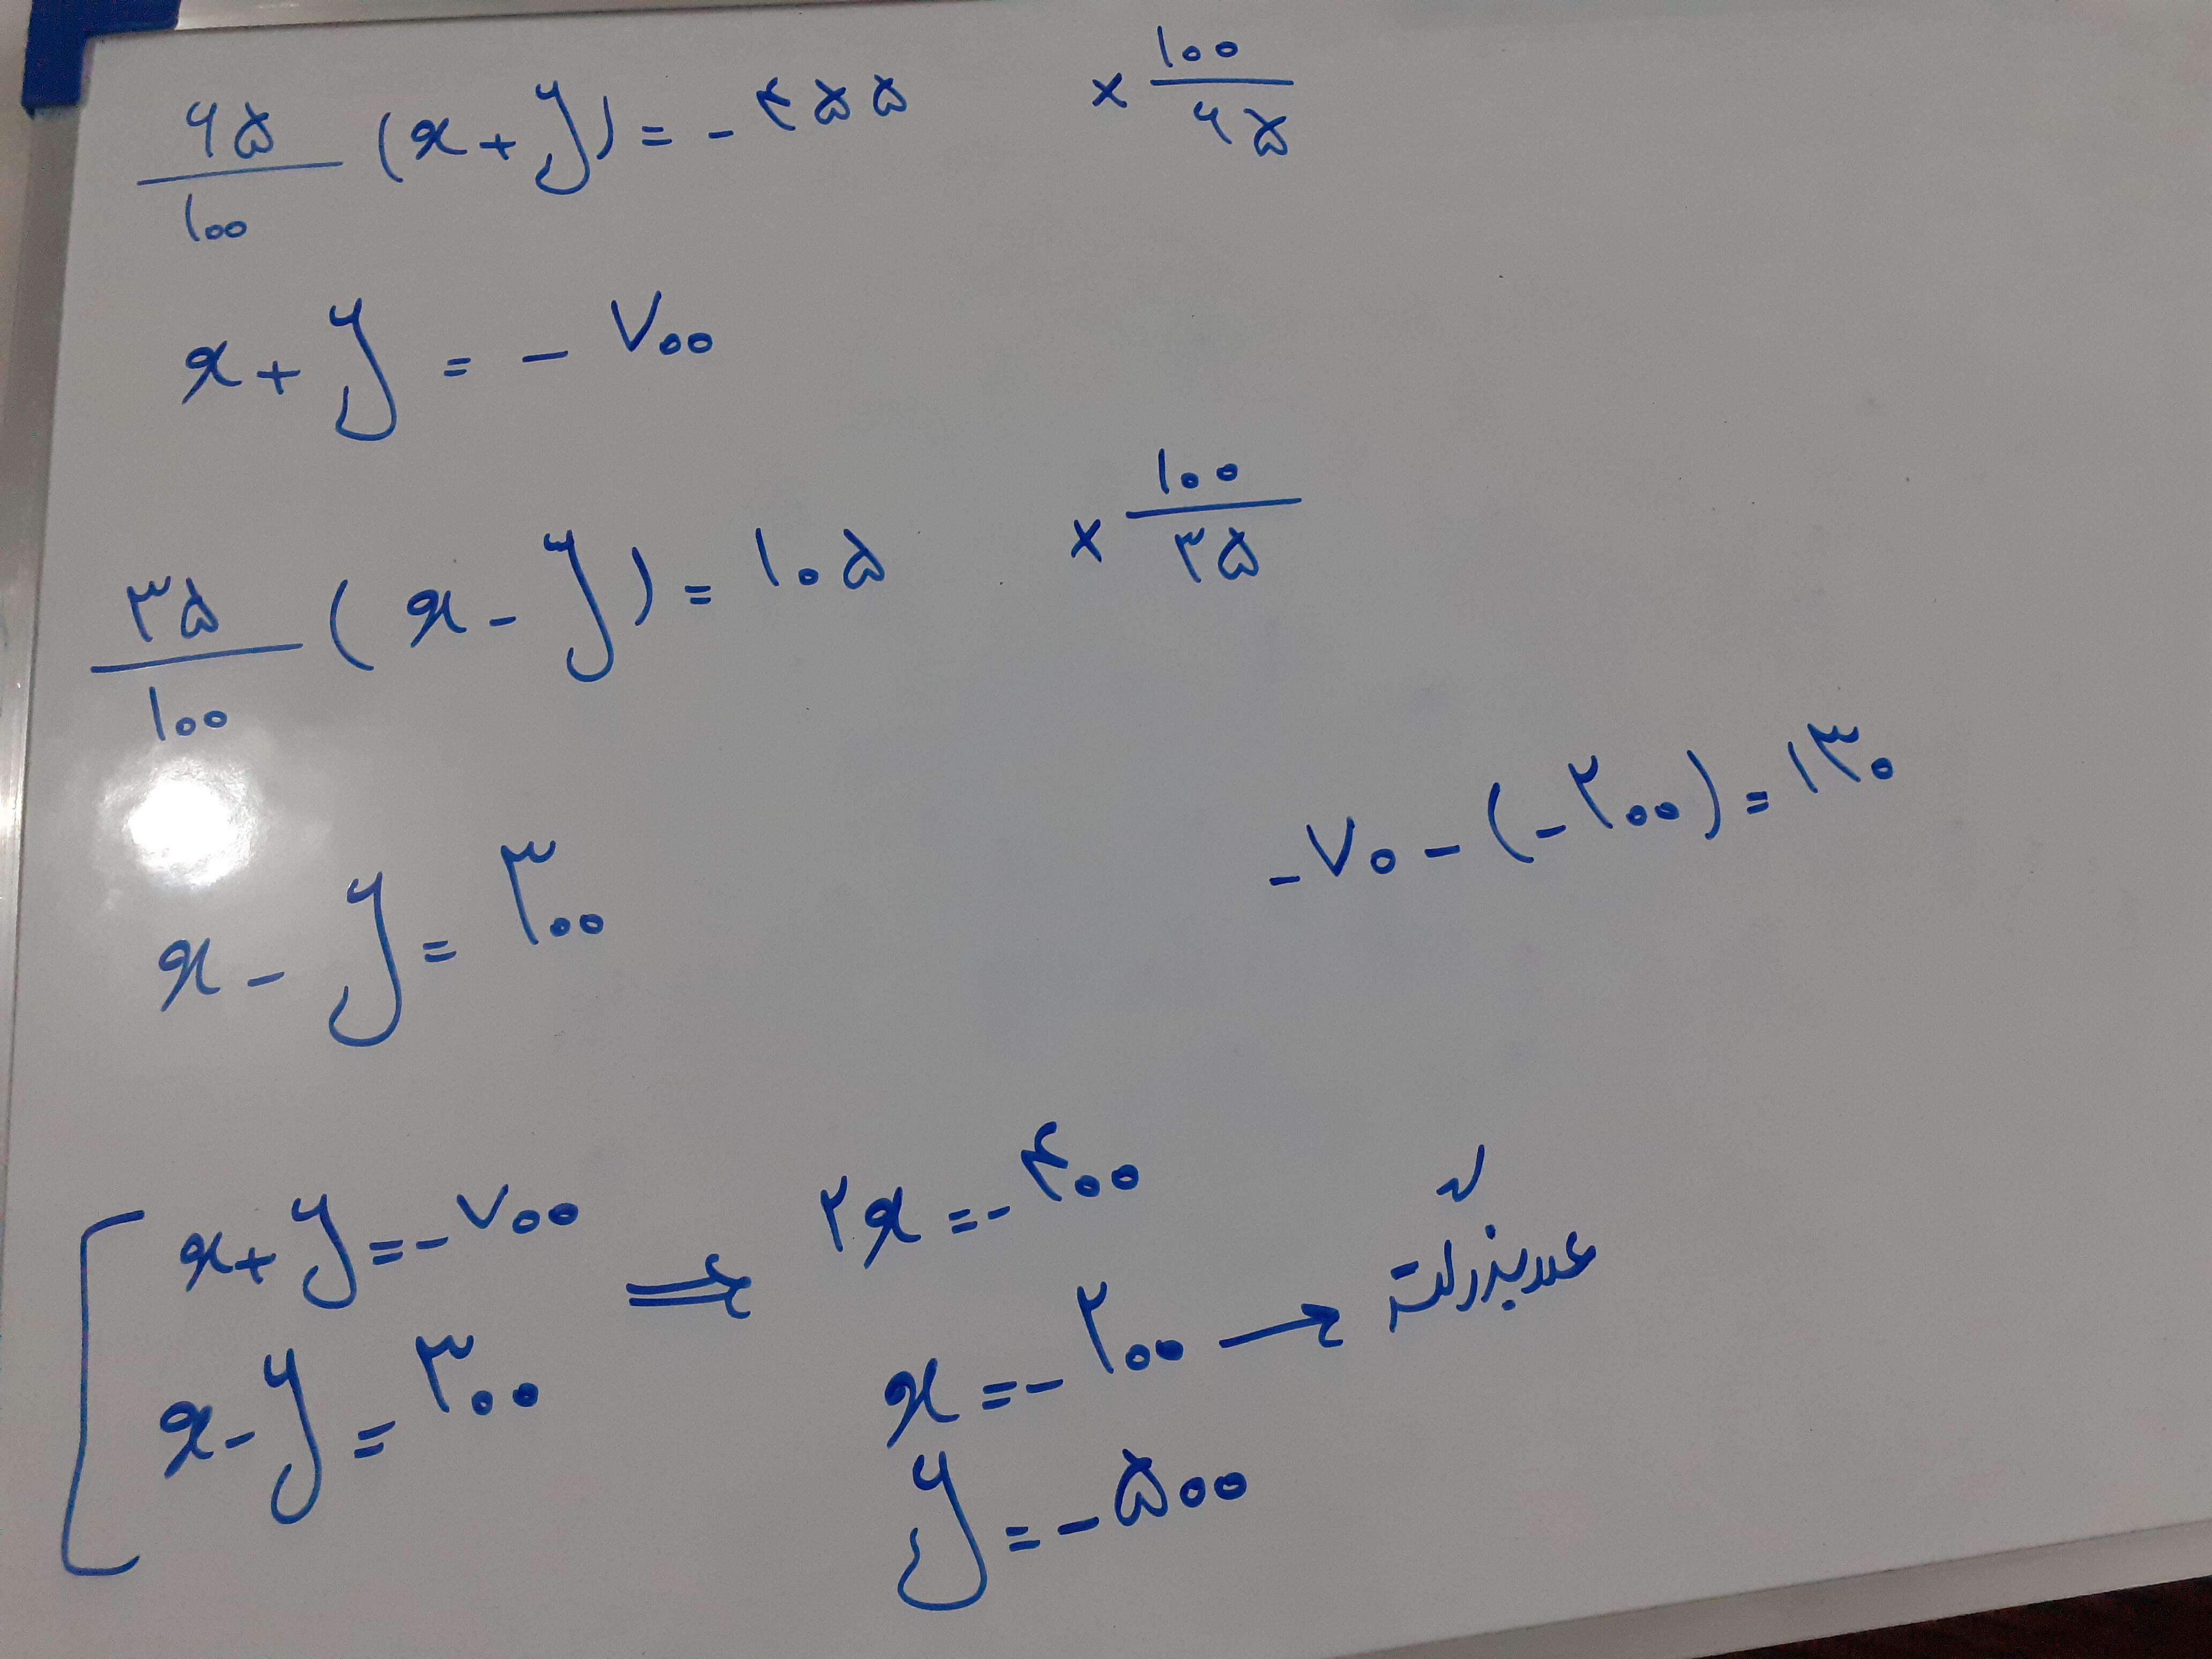 ۶۵/۱۰۰ (x+y) = -۴۵۵ × ۱۰۰/۶۵
x+y = - ۷۰۰
۳۵/۱۰۰ (x-y) = ۱۰۵ × ۱۰۰/۳۵
-۷۰-(-۲۰۰)=۱۳۰
x-y = ۳۰۰
x+y=-۷۰۰ ⇒ ۲x=-۴۰۰
x-y=۳۰۰ x=-۲۰۰ → عدد بزرگتر
y=-۵۰۰